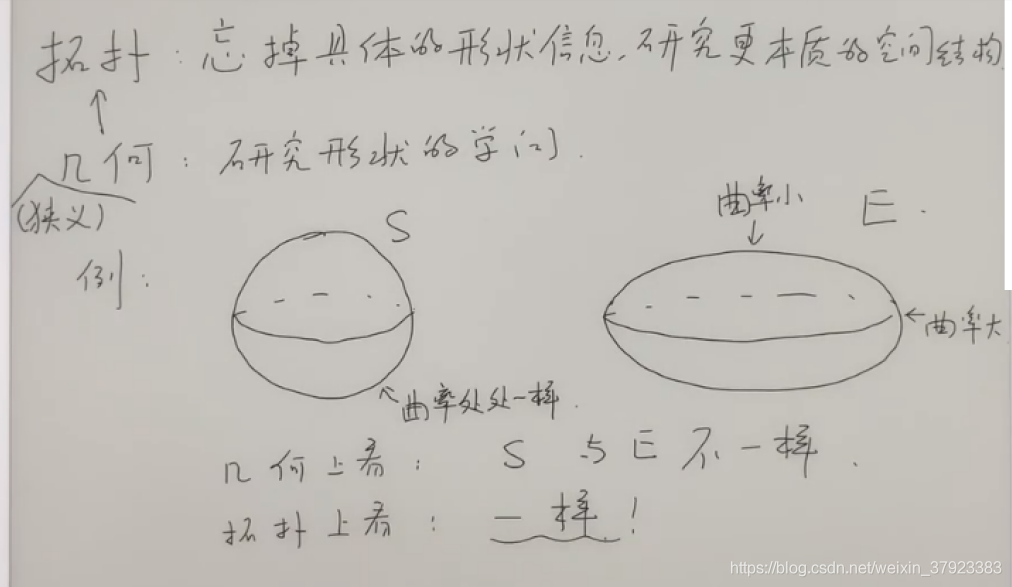 拓扑：忘掉具体的形状信息,研究更本质的空间结构
↑
几何：研究形状的学问.
(狭义)
例：
S
曲率小
E.
←曲率大
曲率处处一样.
几何上看： S 与 E 不一样.
拓扑上看： 一样！
https://blog.csdn.net/weixin_37923383